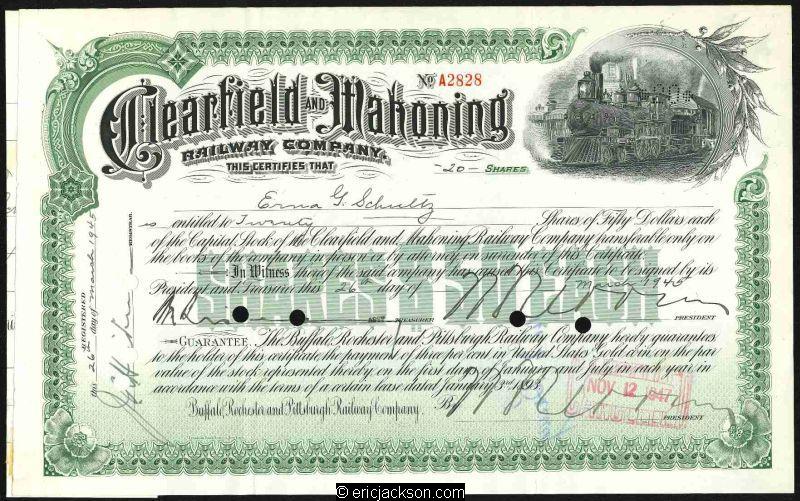 No. A2828
Clearfield AND Mahoning
RAILWAY COMPANY.
THIS CERTIFIES THAT
-20- SHARES
Erna G. Schultz
is entitled to Twenty Shares of Fifty Dollars each
of the Capital Stock of the Clearfield and Mahoning Railway Company transferable only on
the books of the company in person or by attorney on surrender of this Certificate.
In Witness thereof the said company has caused this Certificate to be signed by its
President and Treasurer this 26th day of March 1945
TREASURER
PRESIDENT
GUARANTEE. The Buffalo, Rochester and Pittsburgh Railway Company hereby guarantees
to the holder of this certificate the payment of three per cent in United States Gold coin, on the par
value of the stock represented thereby on the first days of January and July in each year in
accordance with the terms of a certain lease dated January 3rd 1893.
Buffalo, Rochester and Pittsburgh Railway Company.
By
PRESIDENT
NOV 12 1947
REGISTERED
this 26th day of March 1945
REGISTRAR.
© ericjackson.com